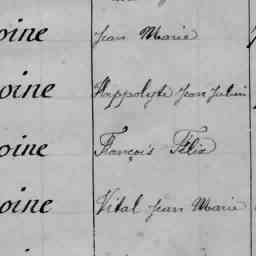 oine Jean Marie
oine Hyppolyte Jean Julien
oine François Félix
oine Vital Jean Marie